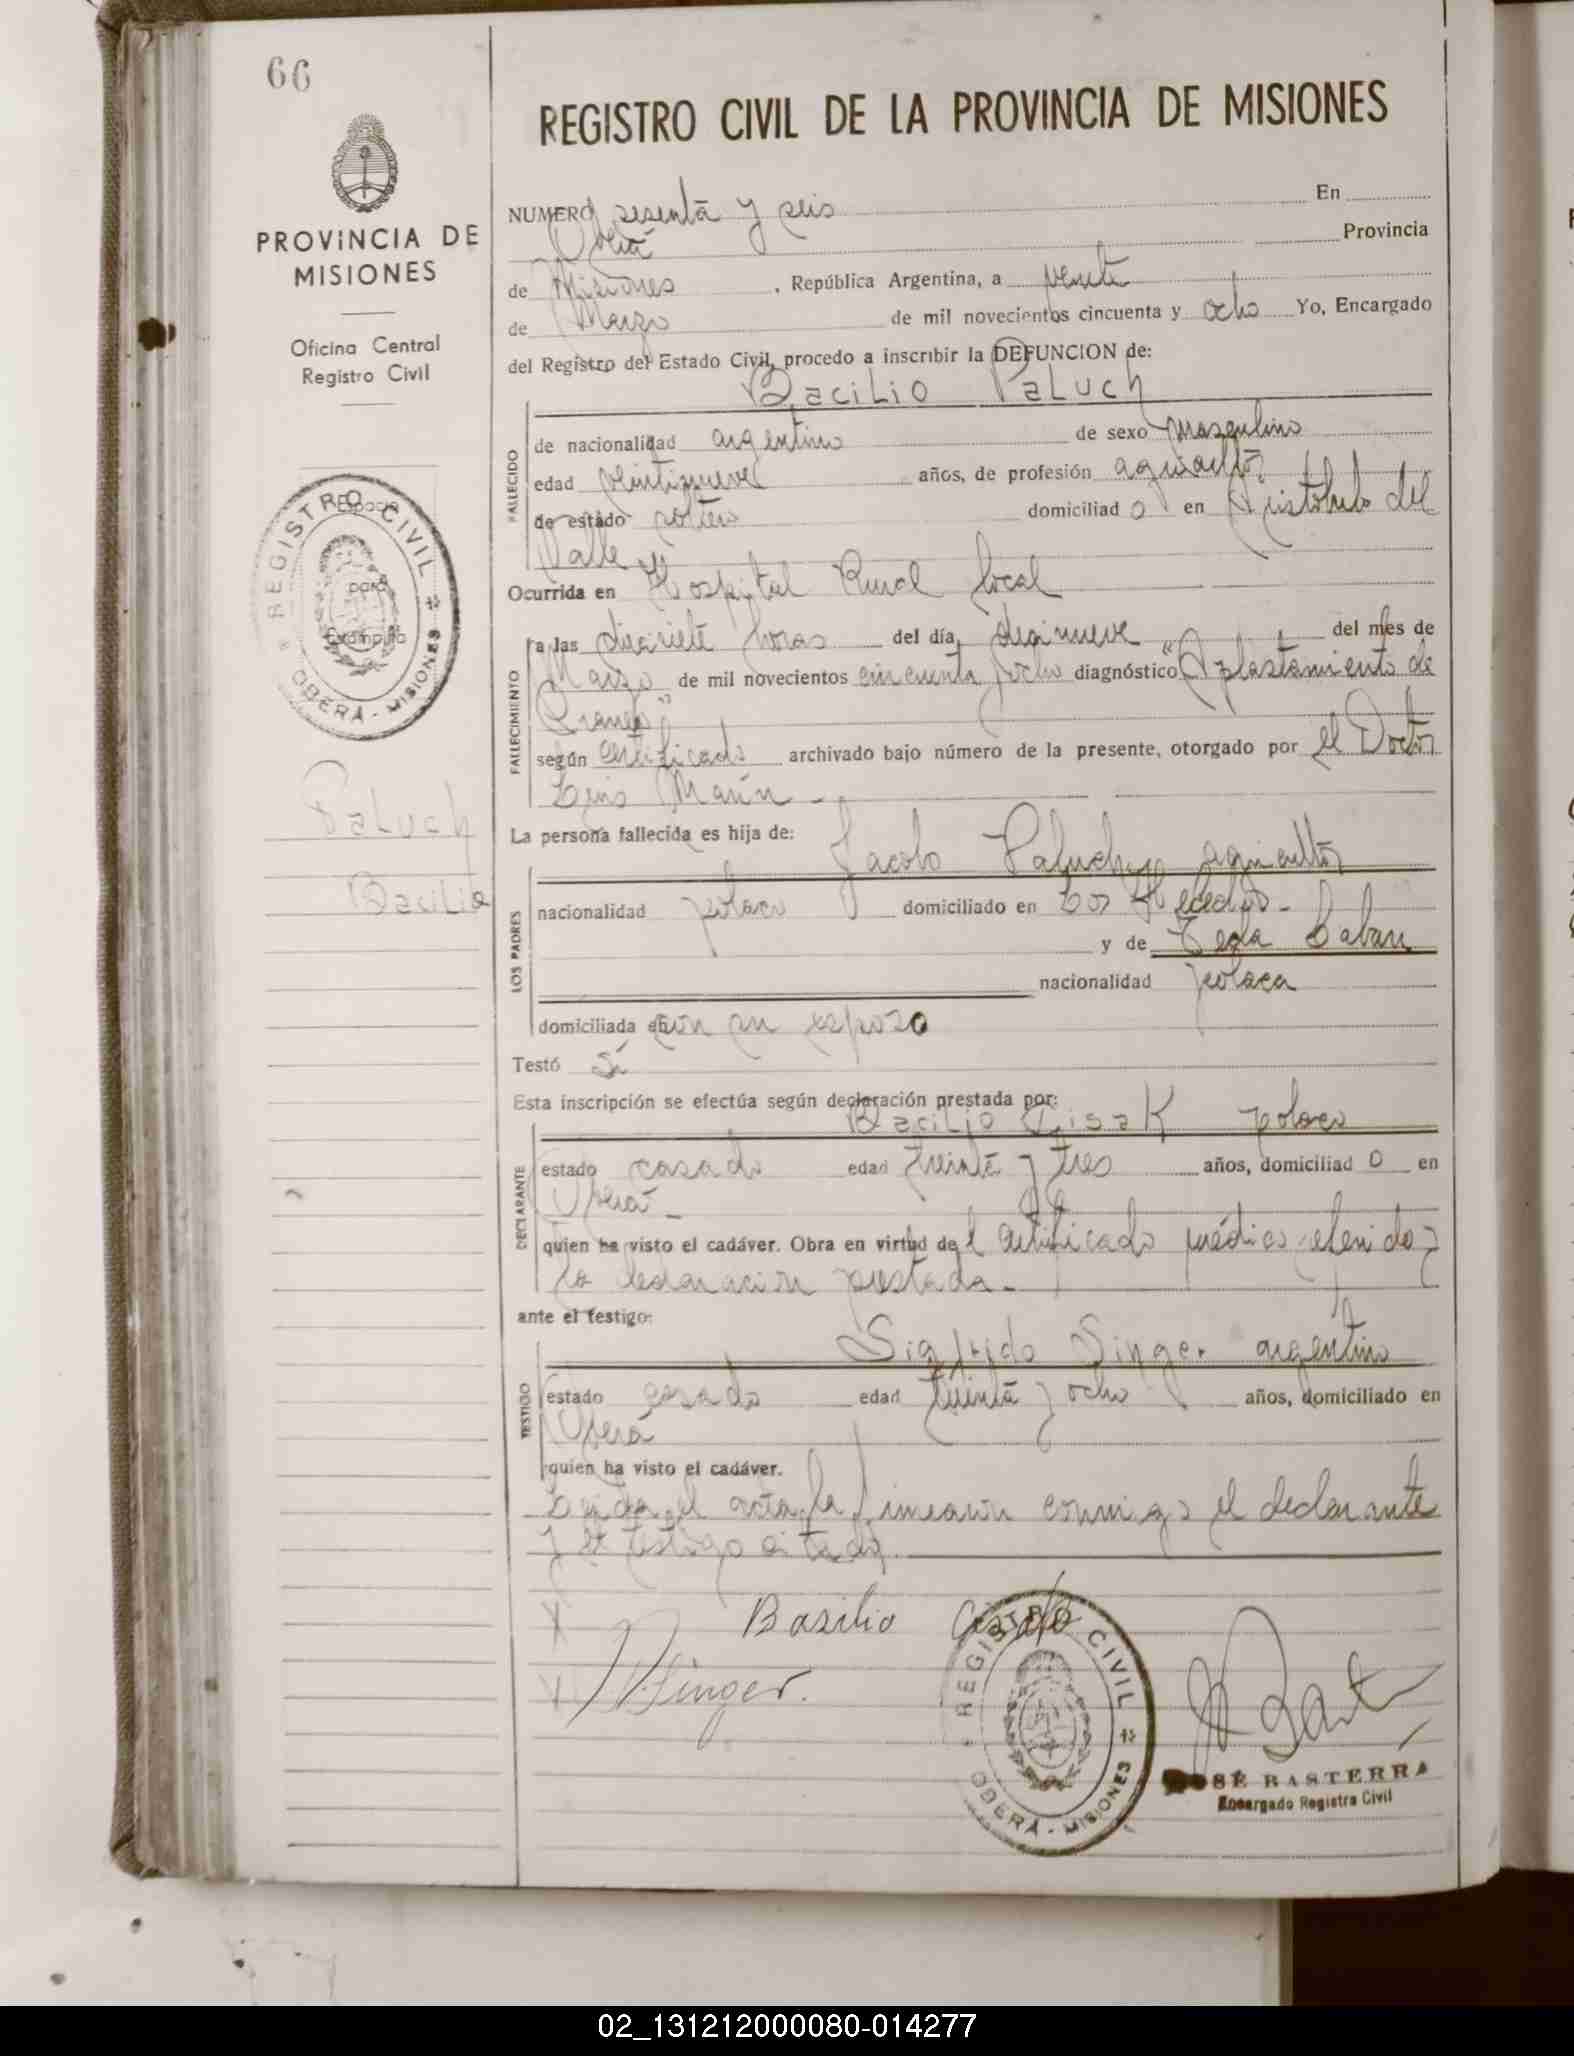 66
PROVINCIA DE
MISIONES
Oficina Central
Registro Civil
REGISTRO CIVIL
Espacio
para
Estampilla
OBERÁ - MISIONES
Paluch
Bacilio
REGISTRO CIVIL DE LA PROVINCIA DE MISIONES
NUMERO sesenta y seis En
Oberá Provincia
de Misiones , República Argentina, a veinte
de Marzo de mil novecientos cincuenta y ocho Yo, Encargado
del Registro del Estado Civil, procedo a inscribir la DEFUNCION de:
Bacilio Paluch
FALLECIDO
de nacionalidad argentino de sexo masculino
edad veintinueve años, de profesión agricultor
de estado soltero domiciliad o en Aristobulo del
Valle
Ocurrida en Hospital Rural local
FALLECIMIENTO
a las diecisiete horas del día diecinueve del mes de
Marzo de mil novecientos cincuenta y ocho diagnóstico "Aplastamiento de
Craneo"
según certificado archivado bajo número de la presente, otorgado por el Doctor
Luis Marín -
La persona fallecida es hija de:
LOS PADRES
Jacobo Paluch, agricultor
nacionalidad polaco domiciliado en Los Helechos -
y de Tecla Caban
nacionalidad polaca
domiciliada en con su esposo
Testó
Esta inscripción se efectúa según declaración prestada por:
DECLARANTE
Bacilio Cisak polaco
estado casado edad treinta y tres años, domiciliad o en
Oberá -
quien ha visto el cadáver. Obra en virtud del certificado médico referido y
la declaración prestada -
ante el testigo:
TESTIGO
Sigfrido Singer argentino
estado casado edad treinta y ocho años, domiciliado en
Oberá
quien ha visto el cadáver.
Leída el acta, la firmaron conmigo el declarante
y el testigo citado.
Basilio
Singer.
REGISTRO CIVIL
OBERÁ - MISIONES
JOSÉ BASTERRA
Encargado Registro Civil
02_131212000080-014277